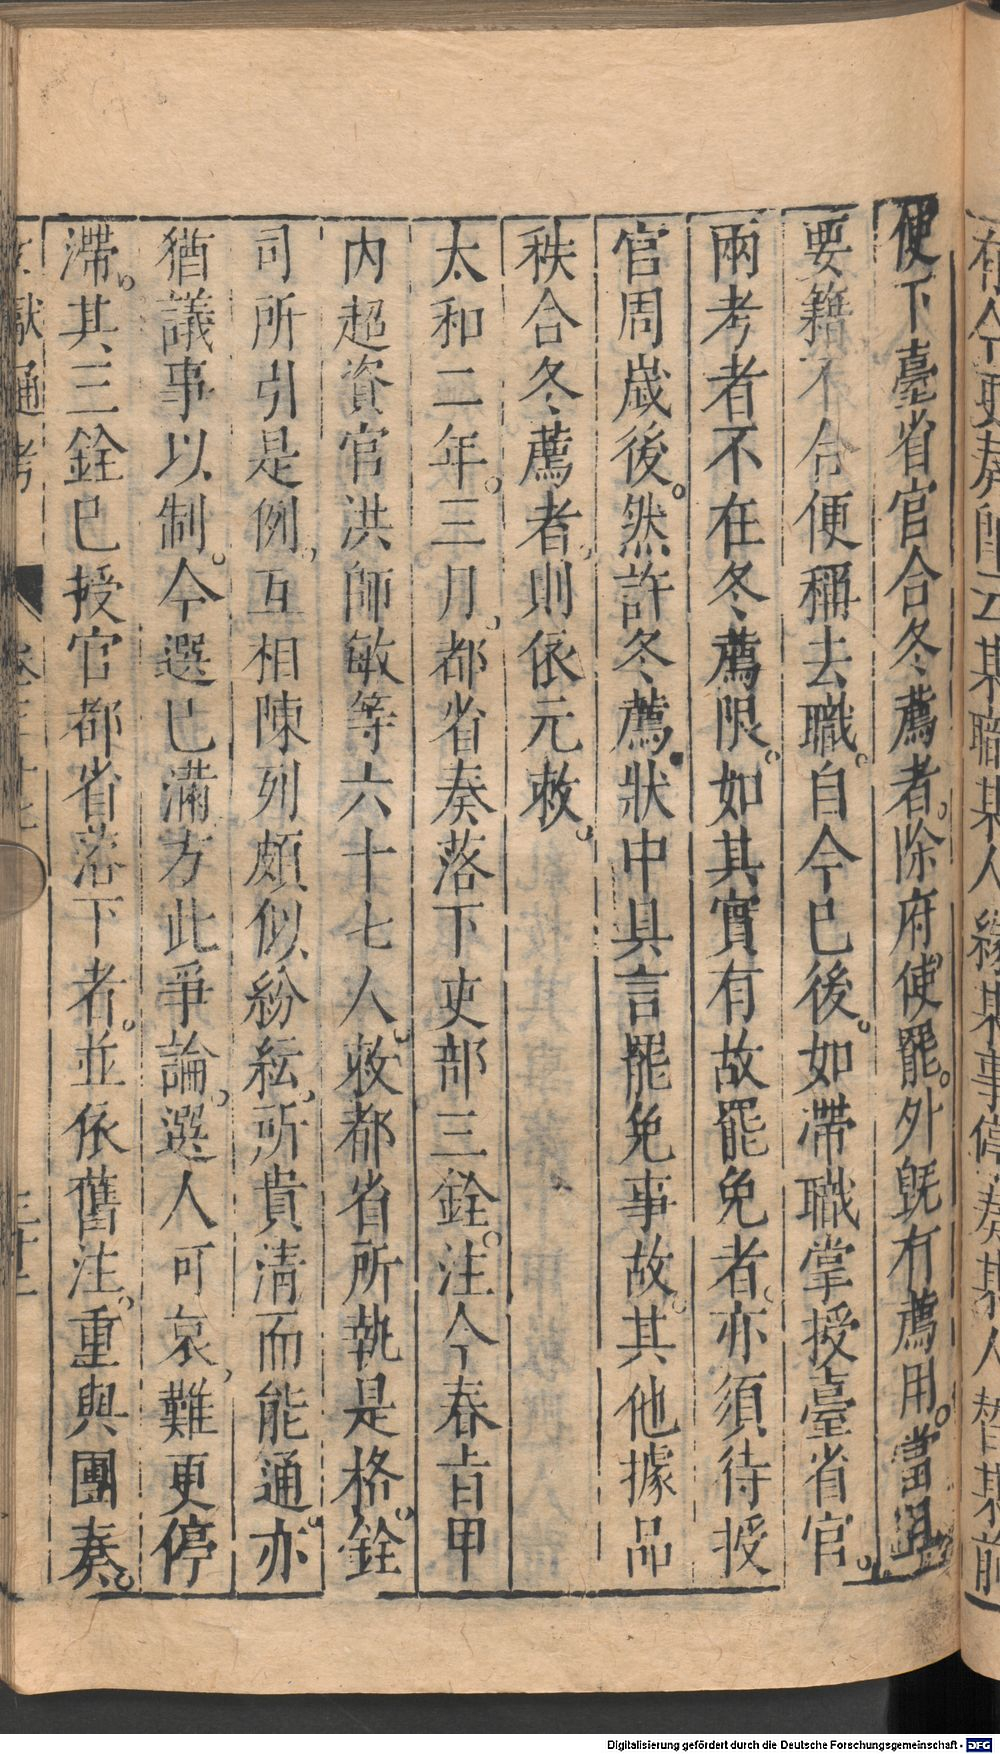 使下臺省官合冬薦者。除府使罷。外旣有薦用。當
要籍不合便稱去職。自今已後。如滯職掌授臺省官。
兩考者不在冬薦限。如其實有故罷免者。亦須待授
官周歲後。然許冬薦。狀中具言罷免事故。其他據品
秩合冬薦者。則依元敕。
太和二年。三月。都省奏落下吏部三銓。注今春旨甲
内超資官洪師敏等六十七人。敕都省所執是格。銓
司所引是例。互相陳列頗似紛紜。所貴清而能通。亦
猶議事以制。今選已滿方此爭論。選人可哀。難更停
滯。其三銓已授官都省落下者。並依舊注。重與團奏。
獻通考
Digitalisierung gefördert durch die Deutsche Forschungsgemeinschaft - DFG